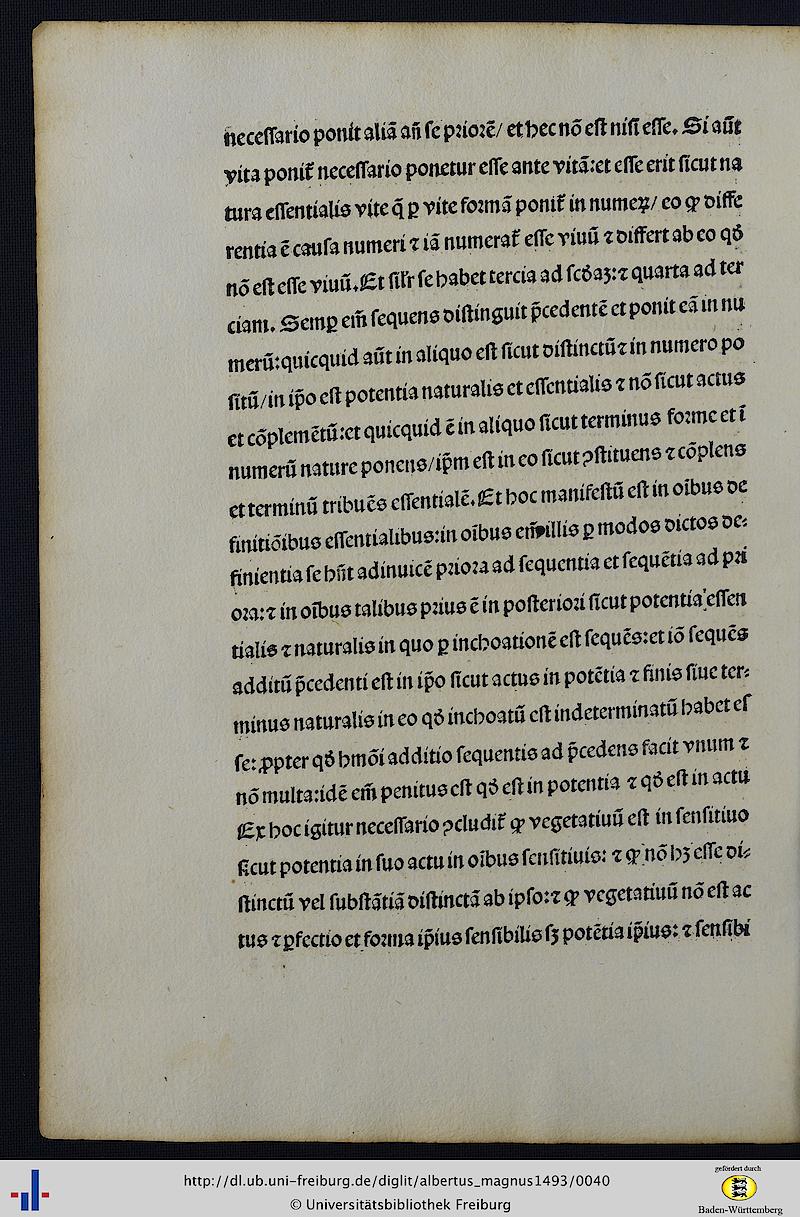 neceſſario ponit aliā añ ſe pꝛioꝛē/ et hec nō eſt niſi eſſe. Si aūt
vita ponit᷑ neceſſario ponetur eſſe ante vitā:et eſſe erit ſicut na
tura eſſentialis vite q̄ ꝑ vite foꝛmā ponit᷑ in numeꝝ/ eo ꝙ diffe
rentia ē cauſa numeri ⁊ iā numerat᷑ eſſe viuū ⁊ differt ab eo qđ
nō eſt eſſe viuū.Et ſil̄r ſe habet tercia ad ſcđaꝫ:⁊ quarta ad ter
ciam. Semꝑ em̄ ſequens diſtinguit p̄cedentē et ponit eā in nu
merū:quicquid aūt in aliquo eſt ſicut diſtinctū⁊ in numero po
ſitū/in ip̄o eſt potentia naturalis et eſſentialis ⁊ nō ſicut actus
et cōplemētū:et quicquid ē in aliquo ſicut terminus foꝛme et ī
numerū nature ponens/ip̄m eſt in eo ſicut ꝯſtituens ⁊ cōplens
et terminū tribuēs eſſentialē.Et hoc manifeſtū eſt in oībus de
finitiōibus eſſentialibus:in oībus em̄ illis ꝑ modos dictos de⸗
finientia ſe hn̄t adinuicē pꝛioꝛa ad ſequentia et ſequētia ad pꝛi
oꝛa:⁊ in oībus talibus pꝛius ē in poſterioꝛi ſicut potentia eſſen
tialis ⁊ naturalis in quo ꝑ inchoationē eſt ſequēs:et iō ſequēs
additū p̄cedenti eſt in ip̄o ſicut actus in potētia ⁊ finis ſiue ter⸗
minus naturalis in eo qđ inchoatū eſt indeterminatū habet eſ
ſe:ꝓpter qđ hmōi additio ſequentis ad p̄cedens facit vnum ⁊
nō multa:idē em̄ penitus eſt qđ eſt in potentia ⁊ qđ eſt in actu
Ex hoc igitur neceſſario ꝯcludit᷑ ꝙ vegetatiuū eſt in ſenſitiuo
ſicut potentia in ſuo actu in oībus ſenſitiuis: ⁊ ꝙ nō hꝫ eſſe di⸗
ſtinctū vel ſubſtātiā diſtinctā ab ipſo:⁊ ꝙ vegetatiuū nō eſt ac
tus ⁊ ꝑfectio et foꝛma ip̄ius ſenſibilis ſꝫ potētia ip̄ius: ⁊ ſenſibi
http://dl.ub.uni-freiburg.de/diglit/albertus_magnus1493/0040
© Universitätsbibliothek Freiburg
gefördert durch
Baden-Württemberg